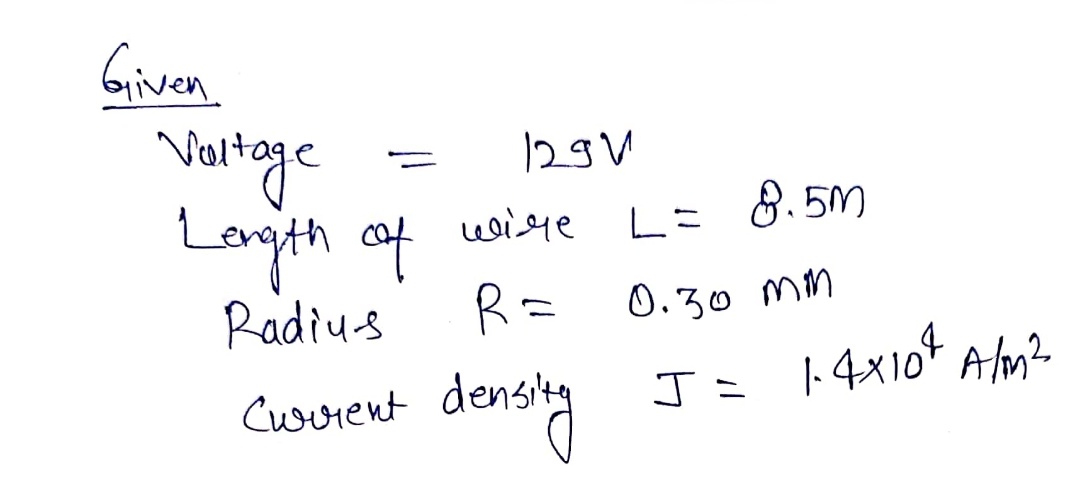 Given
Voltage = 129V
Length of wire L = 8.5m
Radius R = 0.30 mm
Current density J = 1.4×10⁴ A/m²